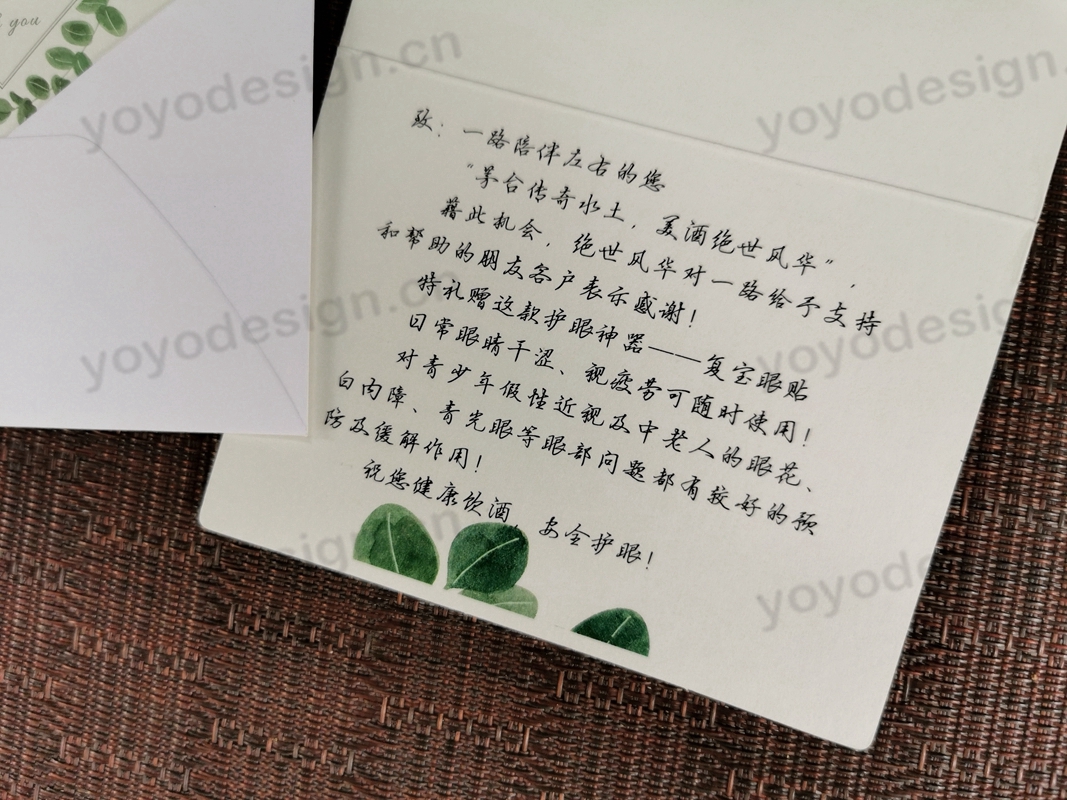 you
致：一路陪伴左右的您
“茅台传奇水土，美酒绝世风华”，
藉此机会，绝世风华对一路给予支持
和帮助的朋友客户表示感谢！
特礼赠这款护眼神器——复宝眼贴
日常眼睛干涩、视疲劳可随时使用！
对青少年假性近视及中老人的眼花、
白内障、青光眼等眼部问题都有较好的预
防及缓解作用！
祝您健康饮酒，安全护眼！
yoyodesign.cn
yoyodesign.cn
yoyodesign.cn
yoyodesign.cn
yoyodesign.cn
yoyodesign.cn